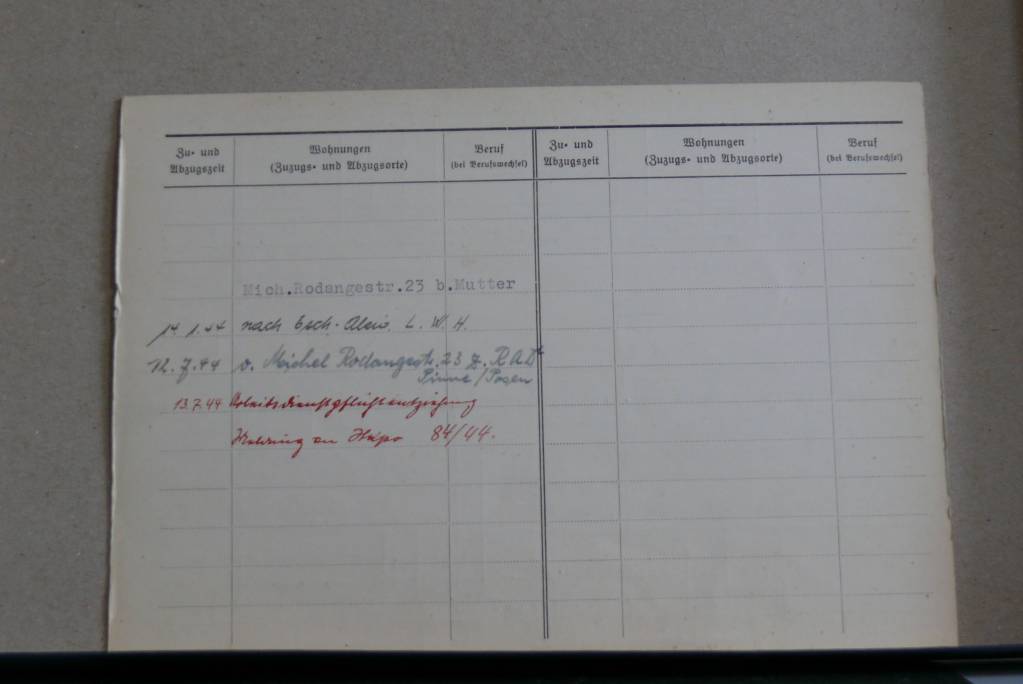 Zu- und Abzugszeit
Wohnungen (Zuzugs- und Abzugsorte)
Beruf (bei Berufswechsel)
Zu- und Abzugszeit
Wohnungen (Zuzugs- und Abzugsorte)
Beruf (bei Berufswechsel)
Mich.Rodangestr.23 b.Mutter
14. 1. 44 nach Esch-Alzig. L. W. H.
12. 7. 44 v. Michel Rodangestr. 23 z. R.A.D.
Pinne/Posen
13.7.44 Arbeitsdienstpflichtentziehung
Meldung an 84/44.